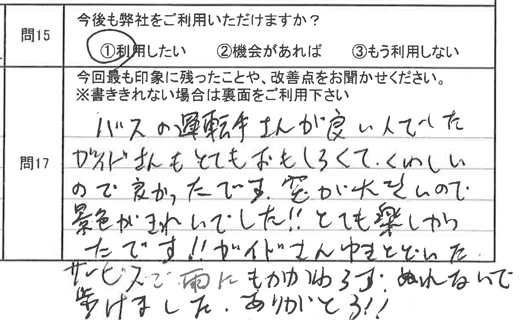 問15
今後も弊社をご利用いただけますか？
①利用したい ②機会があれば ③もう利用しない
問17
今回最も印象に残ったことや、改善点をお聞かせください。
※書ききれない場合は裏面をご利用下さい
バスの運転手さんが良い人でした
ガイドさんもとてもおもしろくて、くわしい
ので良かったです。窓が大きいので
景色がきれいでした!! とても楽しかっ
たです!! ガイドさんゆきとどいた
サービスで雨にもかかわらず、ぬれないで
歩けました。ありがとう!!